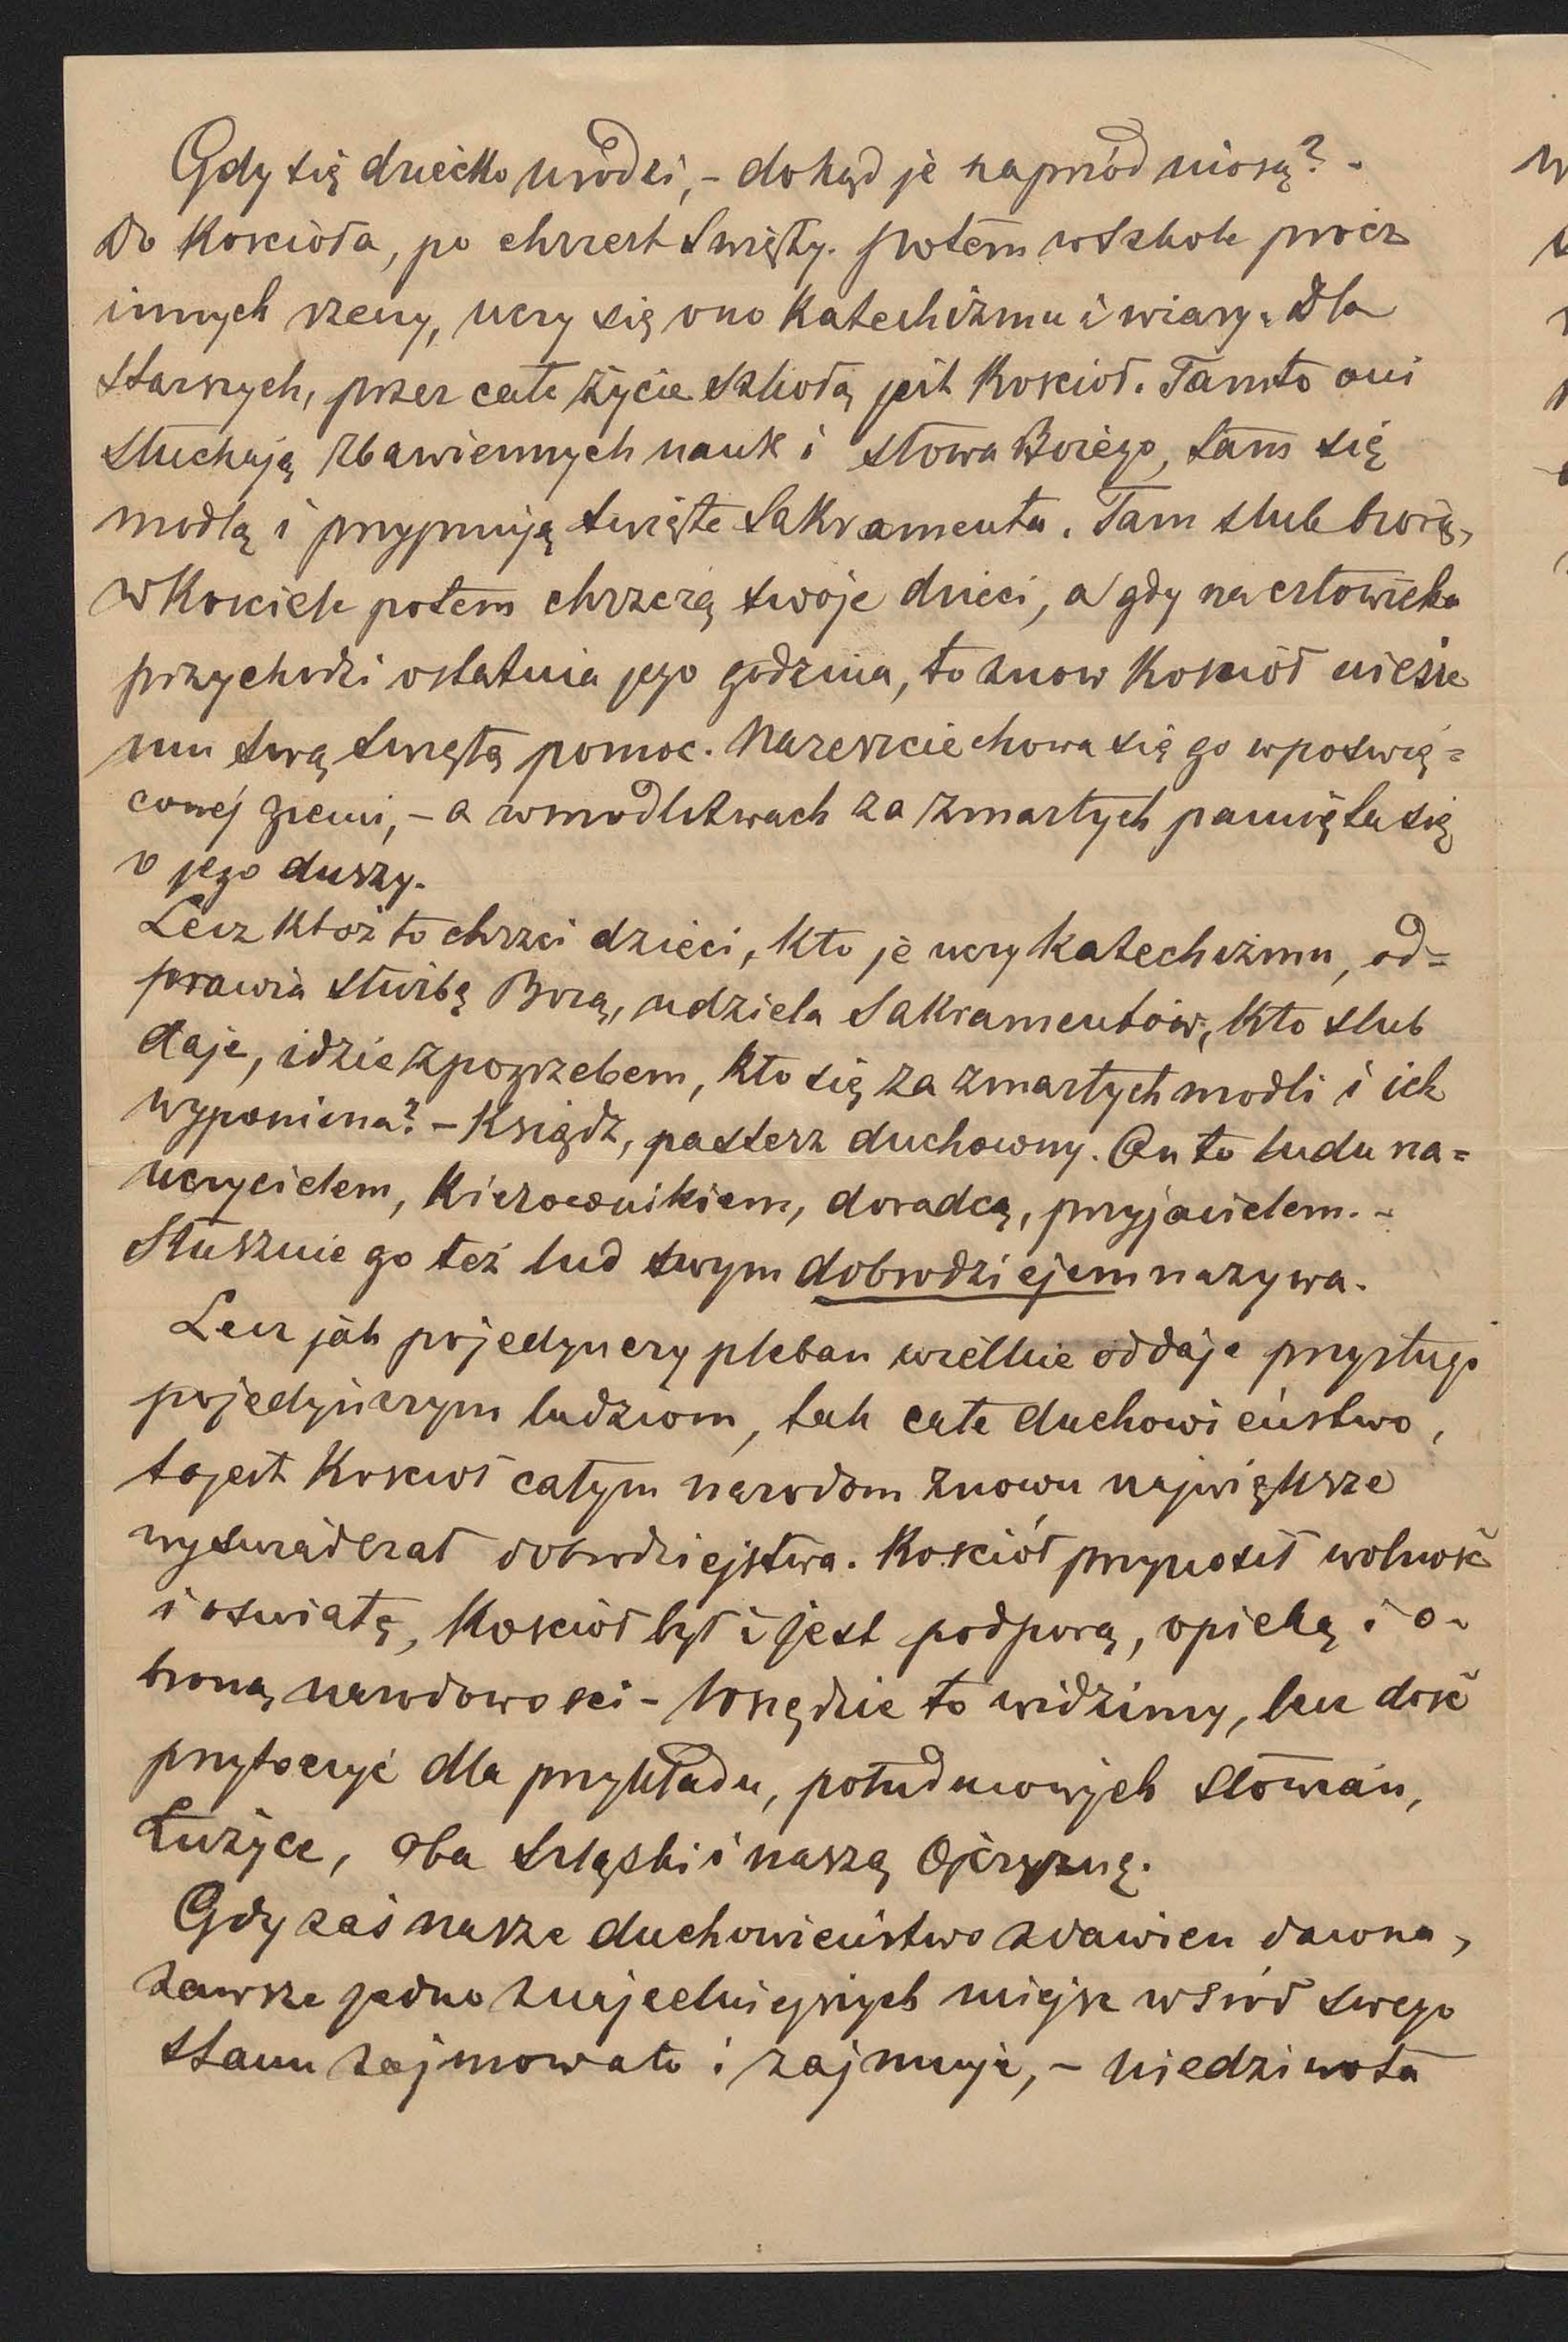 Gdy się dziecko urodzi, - dokąd je naprzód niosą? -
Do Kościoła, po chrzest Święty. Potem w Szkole prócz
innych rzeczy, uczy się ono Katechizmu i wiary. Dla
Starszych, przez całe życie Szkołą jest Kościoł. Tamto oni
Słuchają zbawiennych nauk i słowa Bożego, tam się
modlą i przyjmują święte Sakramenta. Tam slub biorą,
w Kosciele potem chrzczą swoje dzieci, a gdy na człowieka
przychodzi ostatnia jego godzina, to znow Kosciół niesie
mu swą świętą pomoc. Nareszcie chowa się go w poswię=
conej ziemi, - a w modlitwach za zmarłych pamięta się
o jego duszy.
Lecz któż to chrzci dzieci, Kto je uczy Katechizmu, od=
prawia służbę Bożą, udziela Sakramentów, Kto slub
daje, idzie z pogrzebem, kto się za zmarłych modli i ich
wypomina? - Ksiądz, pasterz duchowny. On to ludu na=
uczycielem, Kierownikiem, doradcą, przyjacielem. -
Słusznie go też lud swym dobrodziejem nazywa.
Lecz jak pojedynczy pleban wielkie oddaje przysługi
pojedynczym ludziom, tak całe duchowieństwo,
to jest Kosciół całym narodom znowu największe
wyswiadczał dobrodziejstwa. Kościół przynosił wolność
i oswiatę, Kosciół był i jest podporą, opieką i o-
broną narodowosci - Wszędzie to widzimy, lecz dość
przytoczyć dla przykładu, południowych Słowian,
Łużyce, oba Szląski i naszą Ojczyznę.
Gdy zaś nasze duchowieństwo zdawien dawna,
zawsze jedno z najcelniejszych miejsc wśród swego
stanu zajmowało i zajmuje, - niedziwota